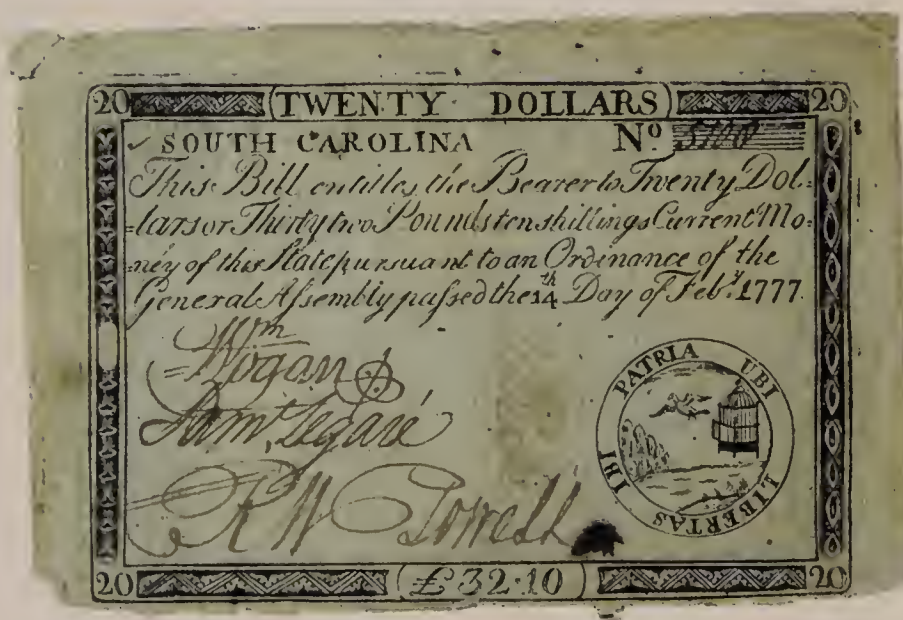 20 (TWENTY DOLLARS) 20
SOUTH CAROLINA Nº
This Bill entitles the Bearer to Twenty Dol-
-lars or Thirty two Pounds ten shillings Current Mo-
-ney of this State pursuant to an Ordinance of the
General Assembly passed the 14th Day of Feby. 1777
Wm
Wogan
Saml. Legaré
R W Powell
IBI PATRIA UBI LIBERTAS
20 (£32.10) 20